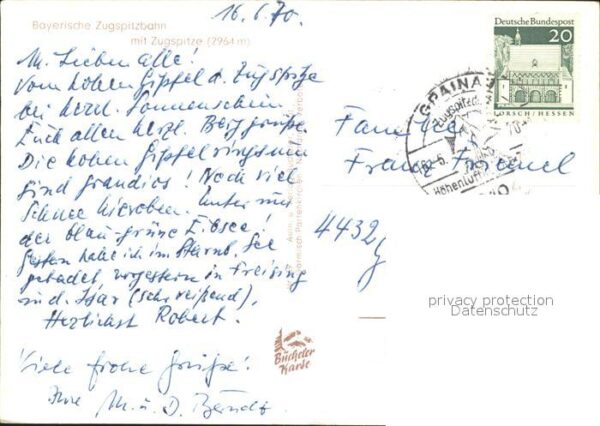 16.6.70.
Bayerische Zugspitzbahn
mit Zugspitze (2964 m)
M. Lieben alle!
Vom hohen Gipfel d. Zugspitze
bei herrl. Sonnenschein
Euch allen herzl. Berggrüße.
Die hohen Gipfel ringsum
sind grandios! Noch viel
Schnee hieroben. Unter mir
der blau-grüne Eibsee!
Gestern habe ich im Starnb. See
gebadet, vorgestern in Freising
in d. Isar (sehr reißend).
Herzlichst Robert.
Viele frohe Grüße!
Ihre M. u. D. Berndt
Deutsche Bundespost
20
LORSCH/HESSEN
GRAINAU
Familie
Franz
4432
Bücheler
Karte
privacy protection
Datenschutz